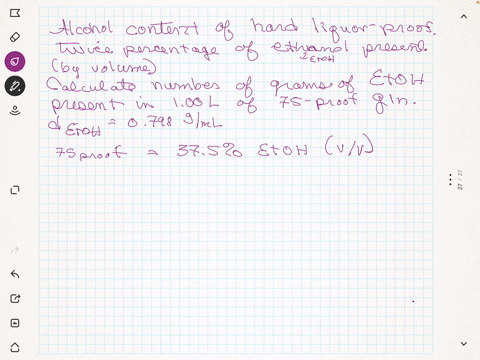 Alcohol content of hard liquor-proof.
twice percentage of ethanol present.
↳ EtOH
(by volume)
Calculate number of grams of EtOH
present in 1.00L of 75-proof gin.
d EtOH = 0.798 g/mL
75 proof = 37.5% EtOH (v/v)
27 / 27